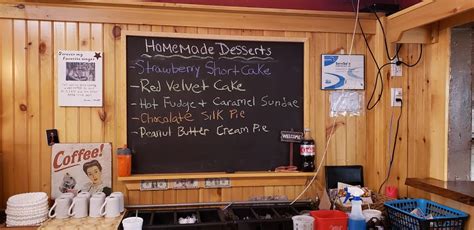 Homemade Desserts
- Strawberry Shortcake
- Red Velvet Cake
- Hot Fudge & Caramel Sundae
- Chocolate Silk Pie
- Peanut Butter Cream Pie
WELCOME
Coffee!